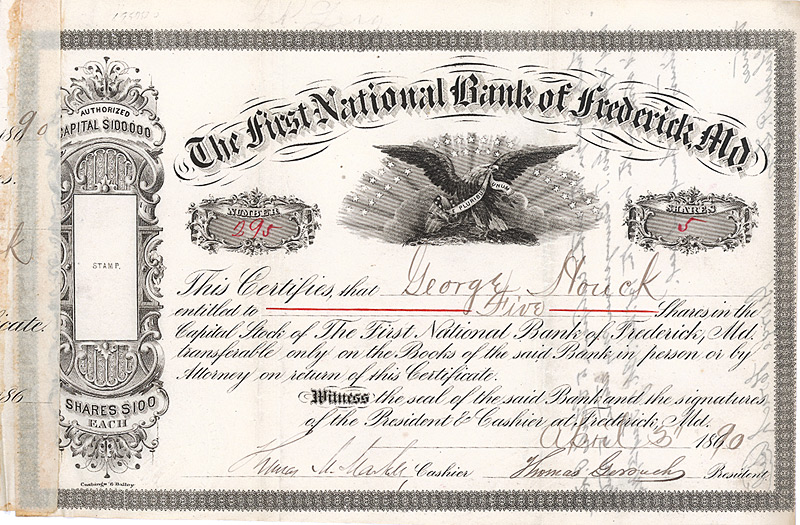 AUTHORIZED
CAPITAL $100000
The First National Bank of Frederick Md.
E PLURIBUS UNUM
NUMBER
295
SHARES
5
STAMP.
This Certifies, that George Houck
entitled to Five Shares in the
Capital Stock of The First National Bank of Frederick, Md.
transferable only on the Books of the said Bank in person or by
Attorney on return of this Certificate.
Witness the seal of the said Bank and the signatures
of the President & Cashier at Frederick, Md.
April 3 1890
SHARES $100
EACH
Cashier Thomas President
icate.
186
1890